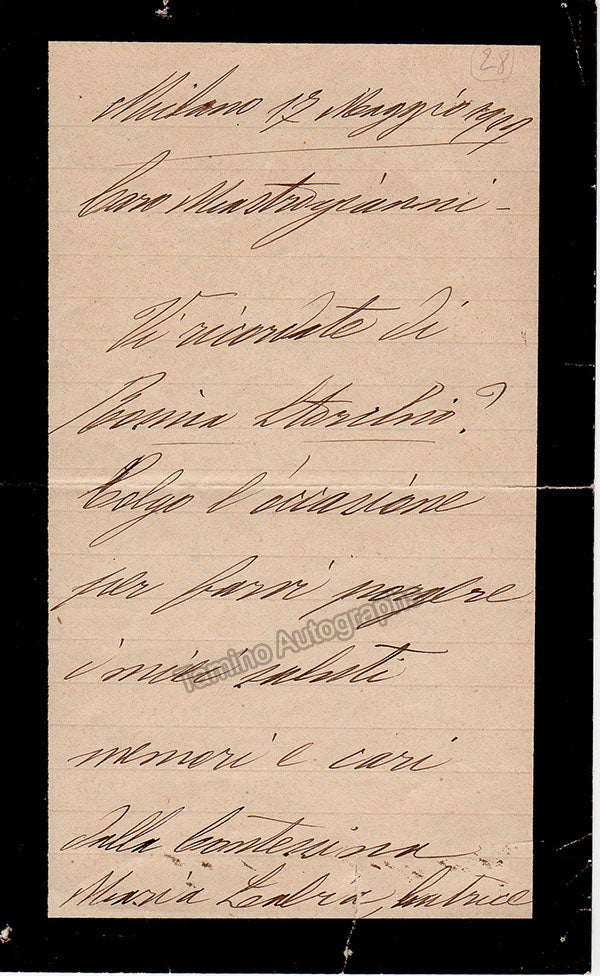 28
Milano 17 Maggio 1919
Caro Mastrogianni -
Vi ricordate di
Rosina Storchio?
Colgo l'occasione
per farvi porgere
i miei saluti
memori e cari
dalla Contessina
Maria Labia,
Tamino Autographs